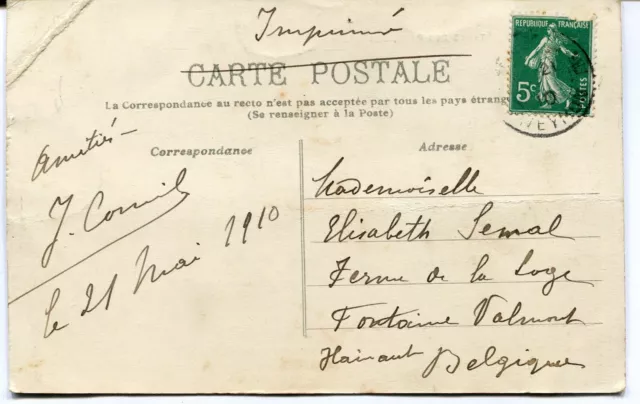 Imprimé
CARTE POSTALE
La Correspondance au recto n'est pas acceptée par tous les pays étrang
(Se renseigner à la Poste)
REPUBLIQUE FRANÇAISE
5c
POSTES
Correspondance
Amitiés
J.
le 21 Mai 1910
Adresse
Mademoiselle
Elisabeth Semal
Ferme de la Loge
Fontaine Valmont
Hainaut Belgique